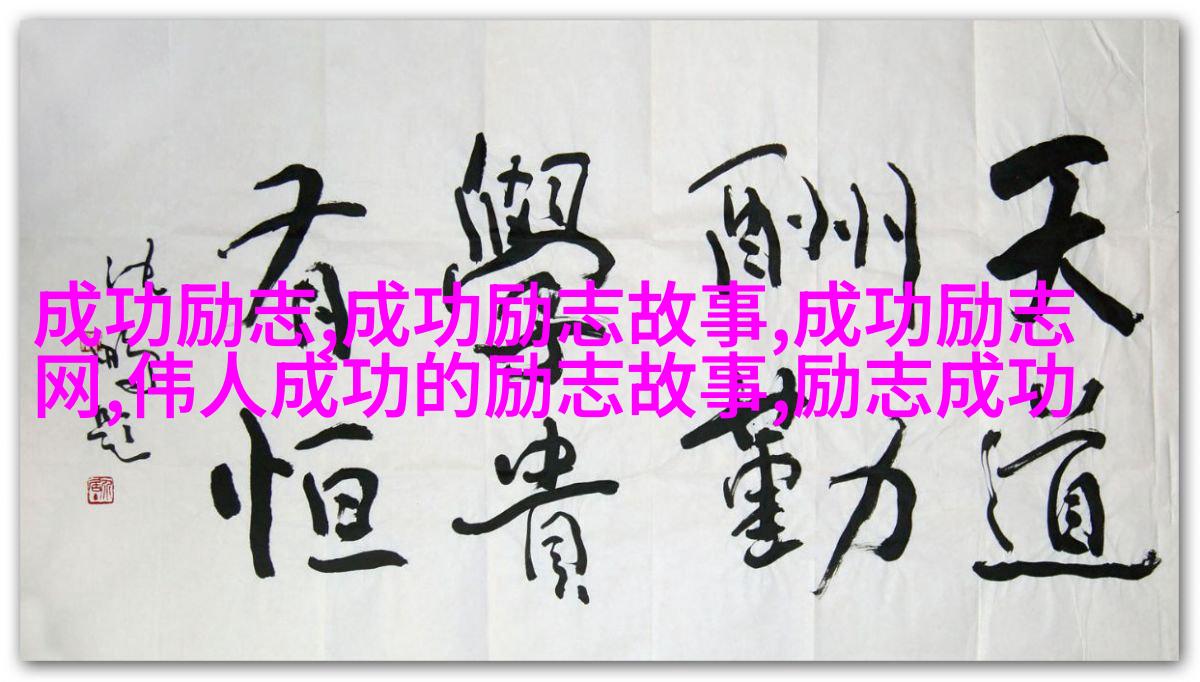 天道
酬勤
学贵
有恒
沈鹏题
成功励志,成功励志故事,成功励志
网,伟人成功的励志故事,励志成功